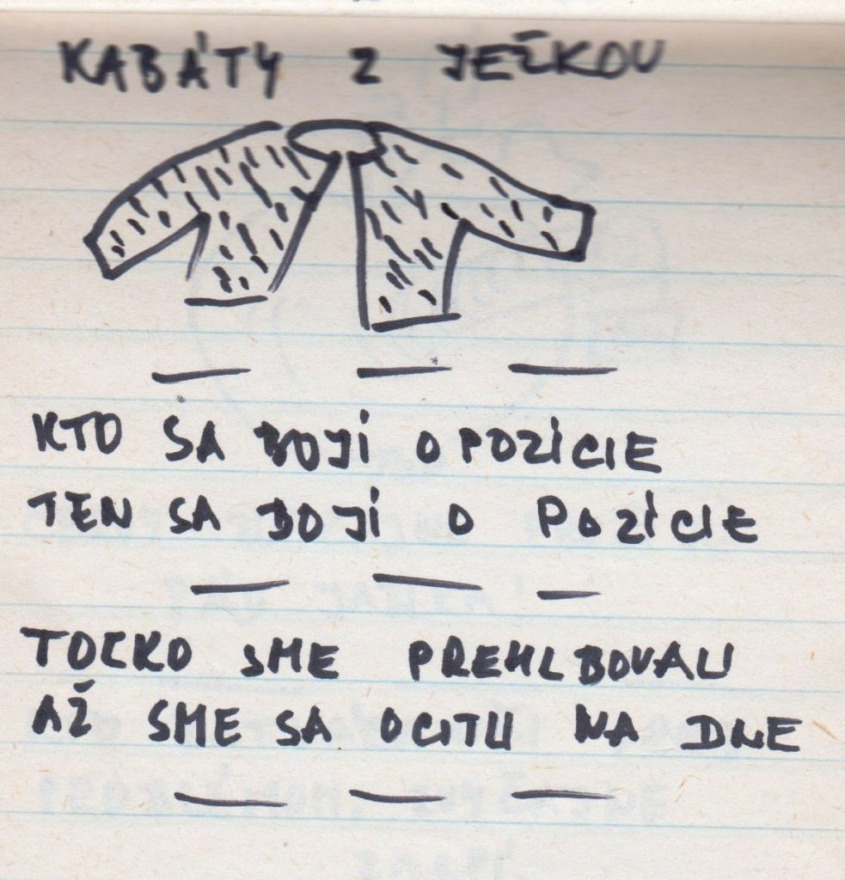 KABÁTY Z JEŽKOV
KTO SA BOJÍ OPOZÍCIE
TEN SA BOJÍ O POZÍCIE
TOĽKO SME PREHLBOVALI
AŽ SME SA OCITLI NA DNE